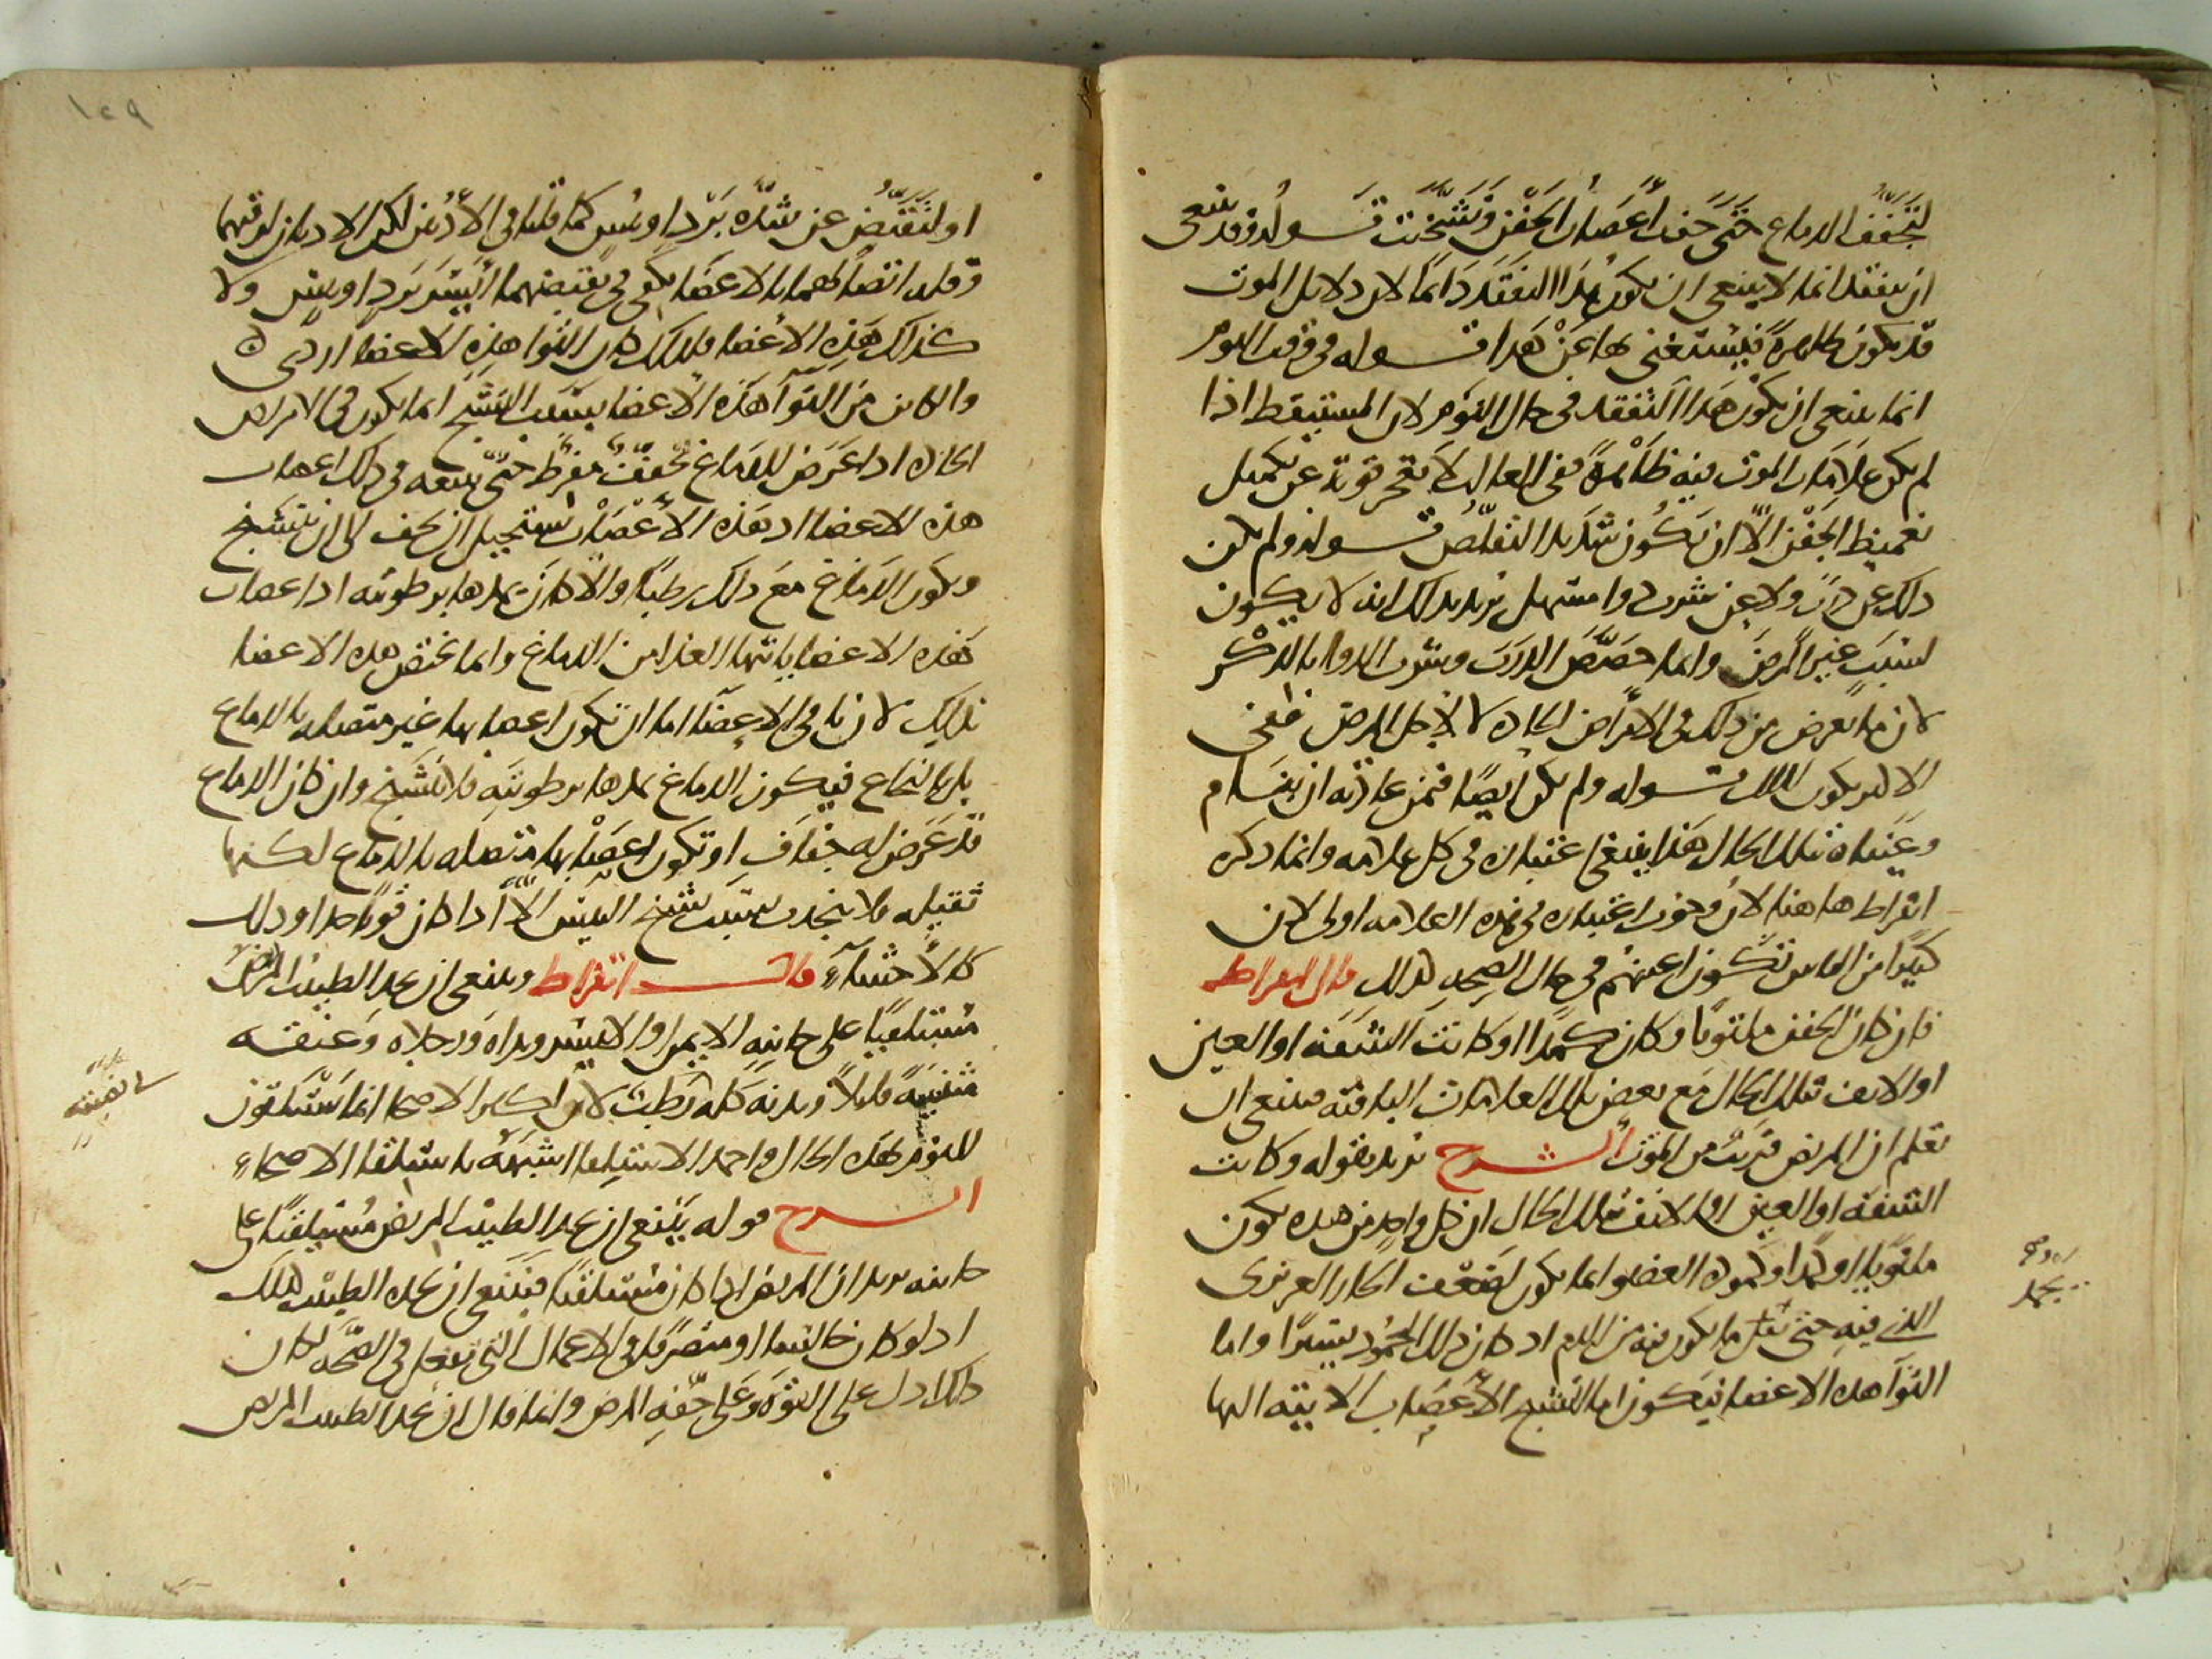 لتجفف الدماغ حتى جفت اعصاب الجفن وتشنجت قوله وقد ينبغى
ان يتفقد انما لا ينبغى ان يكون هذا التفقد دائما لان دلايل الموت
قد يكون ظاهرة فيستغنى بها عن هذا قوله فى وقت النوم
انما ينبغى ان يكون هذا التفقد فى حال النوم لان المستيقظ اذا
لم يكن علامات الموت فيه ظاهرة ففى الغالب لا تعجز قوته عن تكميل
تغميظ الجفن الا ان يكون شديد التقلص قوله ولم يكن
ذلك عن ذرب ولا عن شرب دوا مسهل يريد بذلك انه لا يكون
لسبب غير المرض وانما خصص الذرب وشرب الدوا بالذكر
لان ما يعرض من ذلك فى الامراض الحادة لا لاجل المرض ففى
الاكثر يكون لذلك قوله ولم يكن ايضا فمن عادته ان ينام
وعيناه بتلك الحال هذا ينبغى اعتباره فى كل علامة وانما ذكره
ابقراط هاهنا لان وجوب اعتباره فى هذه العلامة اولى لان
كثيرا من الناس تكون اعينهم فى حال الصحة كذلك قال ابقراط
فان كان الجفن ملتويا وكان كمدا او كانت الشفة او العين
او الانف بتلك الحال مع بعض تلك العلامات الباقية فينبغى ان
تعلم ان المريض قريب من الموت الشرح يريد بقوله وكانت
الشفة او العين او الانف بتلك الحال ان كل واحد من هذه يكون
ملتويا او كمدا وكمودة العضو انما يكون لضعف الحار الغريزى
الذى فيه حتى تقل ما يكون فيه من الدم اذ كان ذلك الجمود يسيرا واما
التوآ هذه الاعضا فيكون اما لتشنج الاعصاب الاتية اليها
يجمد
او لتقبض عن شدة برد او يبس كما قلنا فى الاذنين لكن الاذنان لرقتهما
وقلة اتصالهما بالاعضا يكفى فى تقبضهما ايسر برد او يبس ولا
كذلك هذه الاعضا فلذلك كان التوا هذه الاعضا اردى
والكاين من التوآ هذه الاعضا بسبب التشنج انما يكون فى الامراض
الحادة اذا عرض للدماغ تجفف مفرط حتى يتبعه فى ذلك اعصاب
هذه الاعضا اذ هذه الاعصاب يستحيل ان تجف الى ان يتشنج
ويكون الدماغ مع ذلك رطبا والا كان يمدها برطوبته اذ اعصاب
هذه الاعضا ياتيها الغذا من الدماغ وانما تختص هذه الاعضا
بذلك لان باقى الاعضا اما ان تكون اعصابها غير متصلة بالدماغ
بل بالنخاع فيكون الدماغ يمدها برطوبته فلا تتشنج وان كان الدماغ
قد عرض له جفاف او تكون اعصابها متصلة بالدماغ لكنها
ثقيلة فلا ينجذب بسبب تشنج اليبس الا اذا كان قويا جدا وذلك
كالاحشاء قال ابقراط وينبغى ان يجد الطبيب المريض
مستلقيا على جانبه الايمن او الايسر ويداه ورجلاه وعنقه
منثنية قليلا وبدنه كله رطب لان اكثر الاصحا انما يستلقون
للنوم بهذه الحال واحمد الاستلقا اشبهه باستلقا الاصحاء
الشرح قوله ينبغى ان يجد الطبيب المريض مستلقيا على
جانبه يريد ان المريض اذا كان مستلقيا فينبغى ان يجده الطبيب كذلك
اذ لو كان جالسا او منصرفا فى الاعمال التى تفعل فى الصحة لكان
ذلك ادل على القوة وعلى خفة المرض وانما قال ان يجد الطبيب المريض